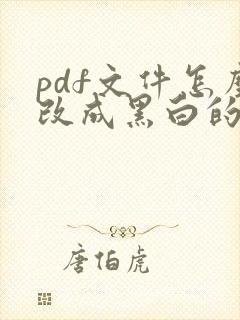 pdf文件怎
改成黑白的
唐伯虎